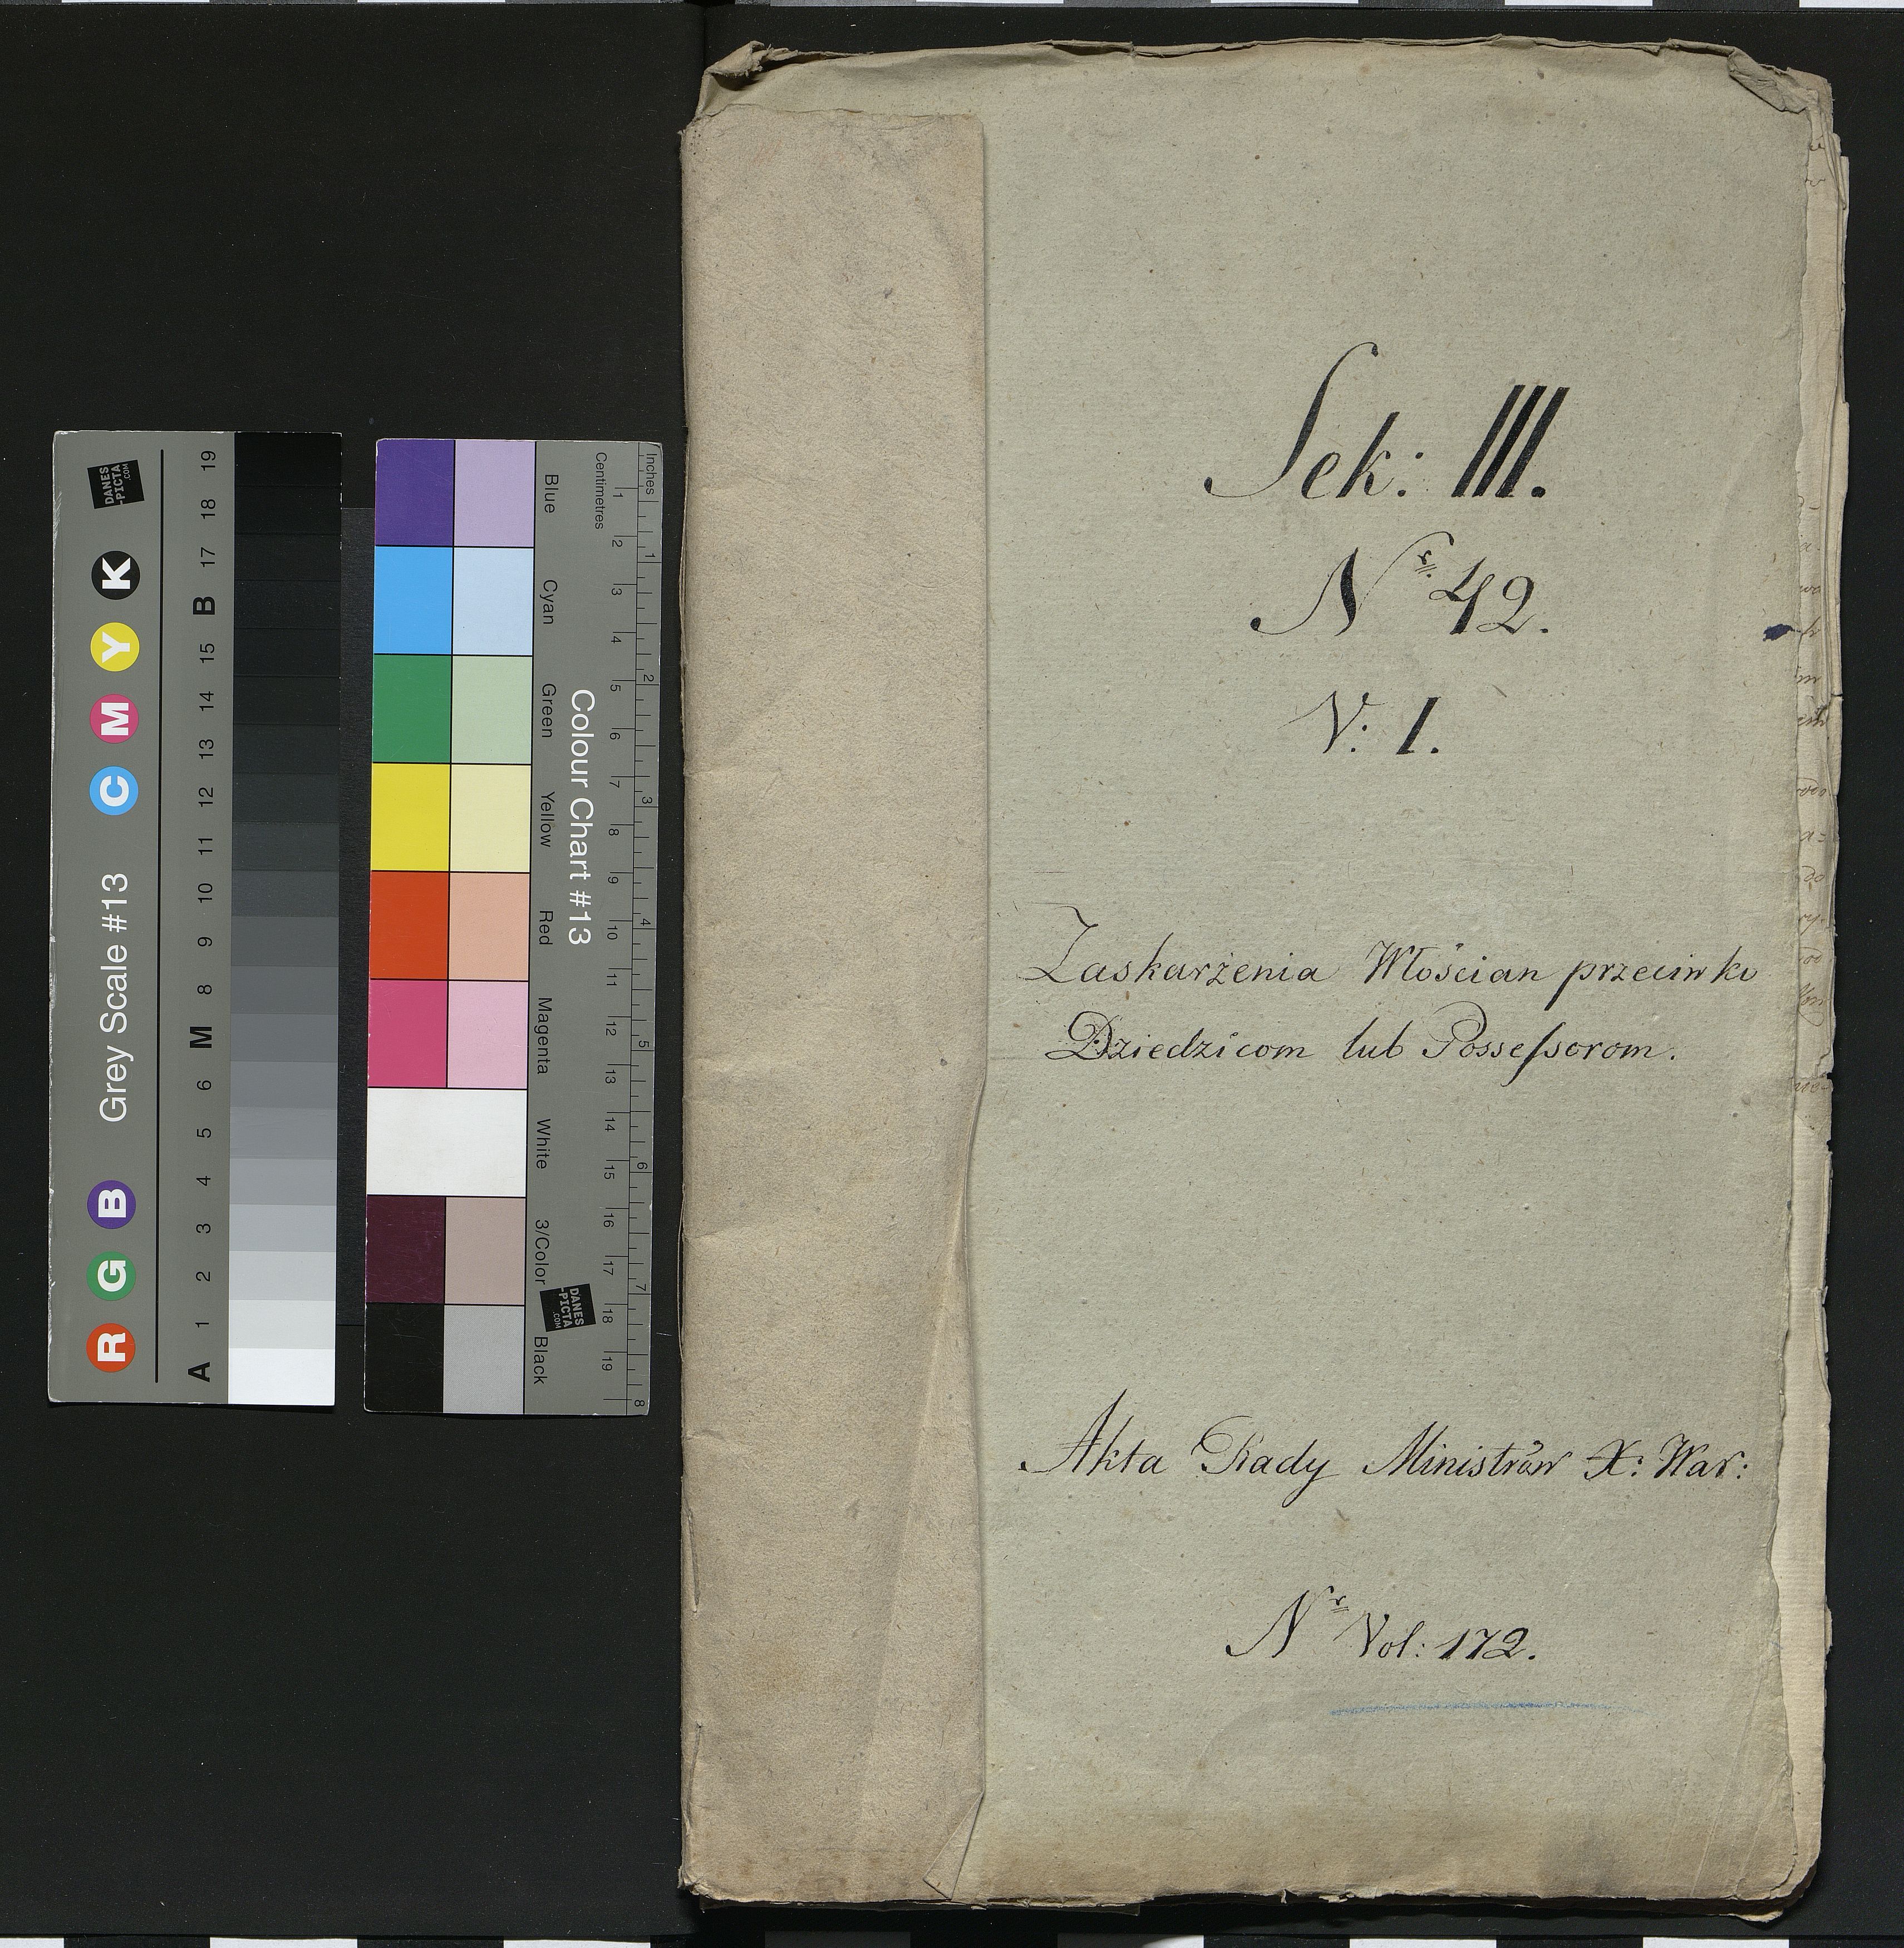 Sek: III.
Nr. 42.
V: 1.
Zaskarżenia Włościan przeciwko
Dziedzicom lub Possessorom.
Akta Rady Ministrów X: War:
Nr Vol: 172.
Grey Scale #13
DANES
-PICTA
.COM
R G B C M Y K
A 1 2 3 4 5 6 M 8 9 10 11 12 13 14 15 B 17 18 19
Colour Chart #13
Blue Cyan Green Yellow Red Magenta White 3/Color Black
Inches 1 2 3 4 5 6 7 8
Centimetres 1 2 3 4 5 6 7 8 9 10 11 12 13 14 15 16 17 18 19
DANES
-PICTA
.COM